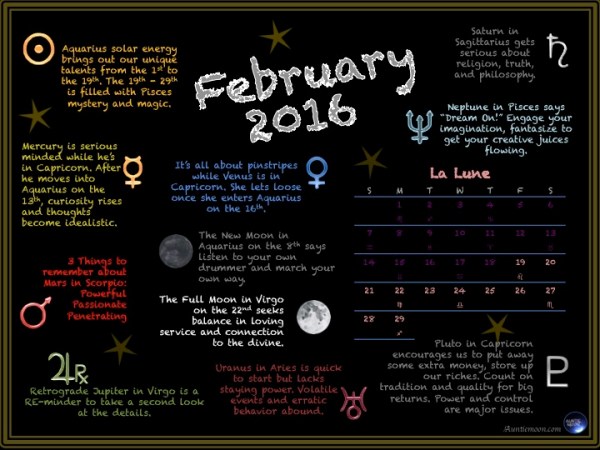 February
2016
Aquarius solar energy
brings out our unique
talents from the 1st to
the 19th. The 19th - 29th
is filled with Pisces
mystery and magic.
Saturn in
Sagittarius gets
serious about
religion, truth,
and philosophy.
Neptune in Pisces says
"Dream On!" Engage your
imagination, fantasize to
get your creative juices
flowing.
Mercury is serious
minded while he's
in Capricorn. After
he moves into
Aquarius on the
13th, curiosity rises
and thoughts
become idealistic.
It's all about pinstripes
while Venus is in
Capricorn. She lets loose
once she enters Aquarius
on the 16th.
La Lune
S M T W T F S
1 2 3 4 5 6
7 8 9 10 11 12 13
14 15 16 17 18 19 20
21 22 23 24 25 26 27
28 29
The New Moon in
Aquarius on the 8th says
listen to your own
drummer and march your
own way.
3 Things to
remember about
Mars in Scorpio:
Powerful
Passionate
Penetrating
The Full Moon in Virgo
on the 22nd seeks
balance in loving
service and connection
to the divine.
Pluto in Capricorn
encourages us to put away
some extra money, store up
our riches. Count on
tradition and quality for big
returns. Power and control
are major issues.
Retrograde Jupiter in Virgo is a
RE-minder to take a second look
at the details.
Uranus in Aries is quick
to start but lacks
staying power. Volatile
events and erratic
behavior abound.
Auntiemoon.com